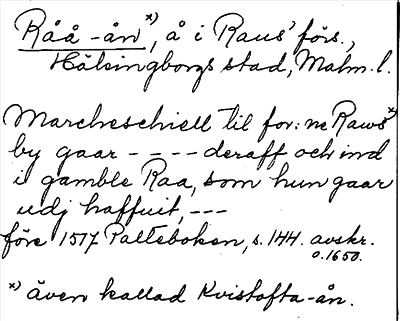 Råå-ån*), å i Raus' förs.,
Hälsingborgs stad, Malm. l.
Marcheschiell til for:ne Raws*)
by gaar - - - - deraff och ind
i gamble Raa, som hun gaar
udj haffuit, ---
före 1517 Palteboken, s. 144. avskr.
o. 1650.
*) även kallad Kvistofta-ån.